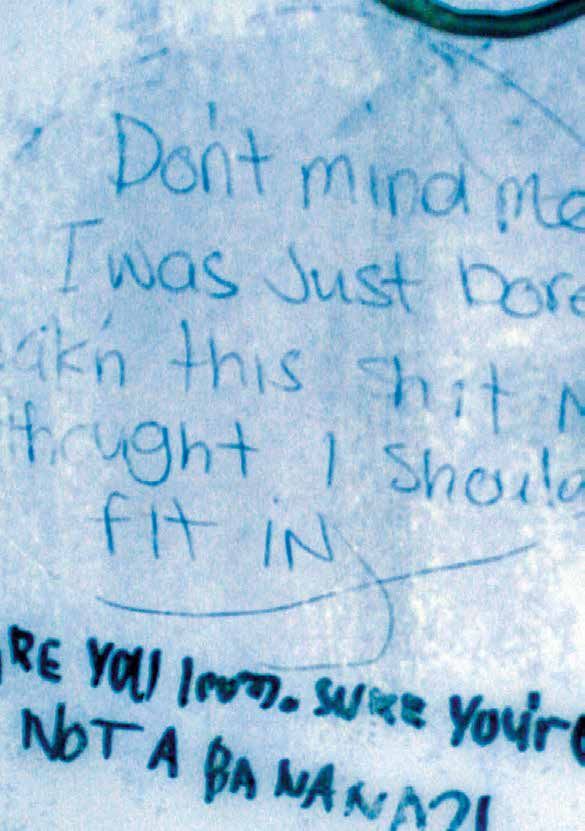 Don't mind me
I was Just bore
akin this shit N
thought I should
fit iN
RE YOU 100%. SURE YOU'RE
NOT A BANANA?!